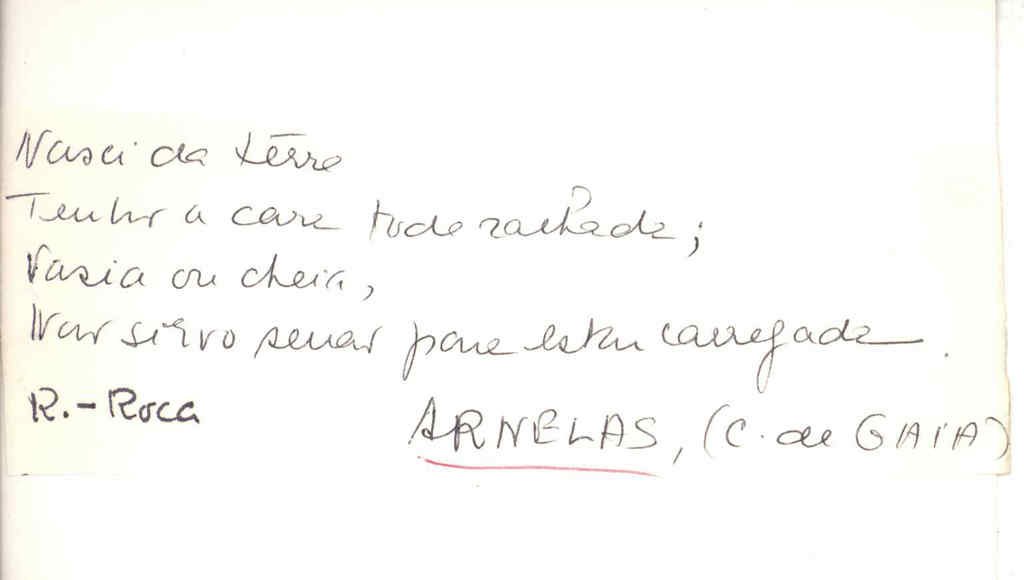 Nasci da terra
Tenho a cara toda rachada;
Vasia ou cheia,
Não sirvo senão para estar carregada.
R.- Roca
ARNELAS, (C. de GAIA)